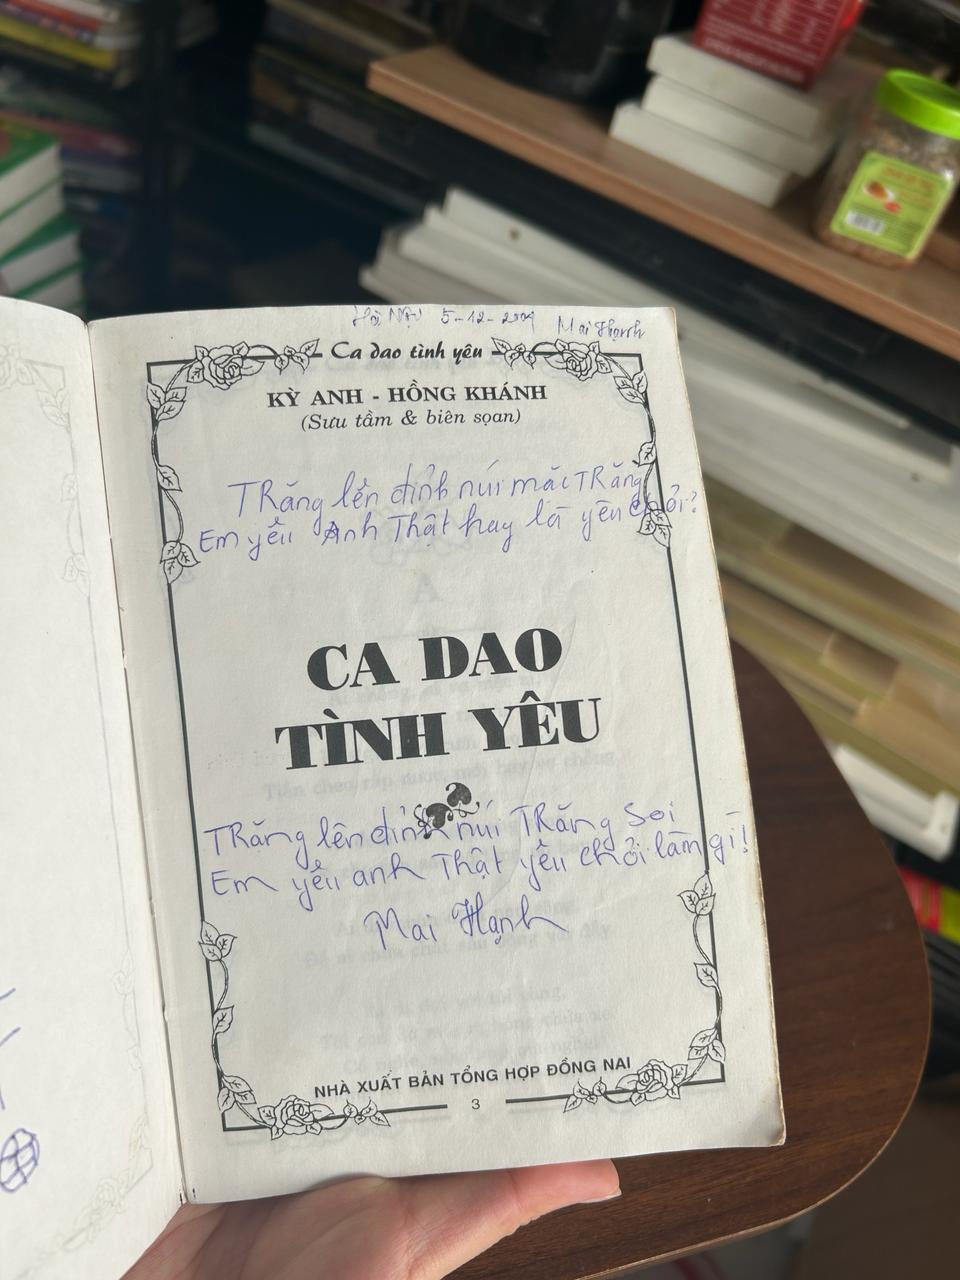 Hà Nội 5-12-2009 Mai Hạnh
Ca dao tình yêu
KỲ ANH - HỒNG KHÁNH
(Sưu tầm & biên soạn)
TRăng lên đỉnh núi mắc TRăng
Em yêu Anh Thật hay là yêu chơi?
CA DAO
TÌNH YÊU
TRăng lên đỉnh núi TRăng soi
Em yêu anh Thật yêu chơi làm gì!
Mai Hạnh
NHÀ XUẤT BẢN TỔNG HỢP ĐỒNG NAI
3